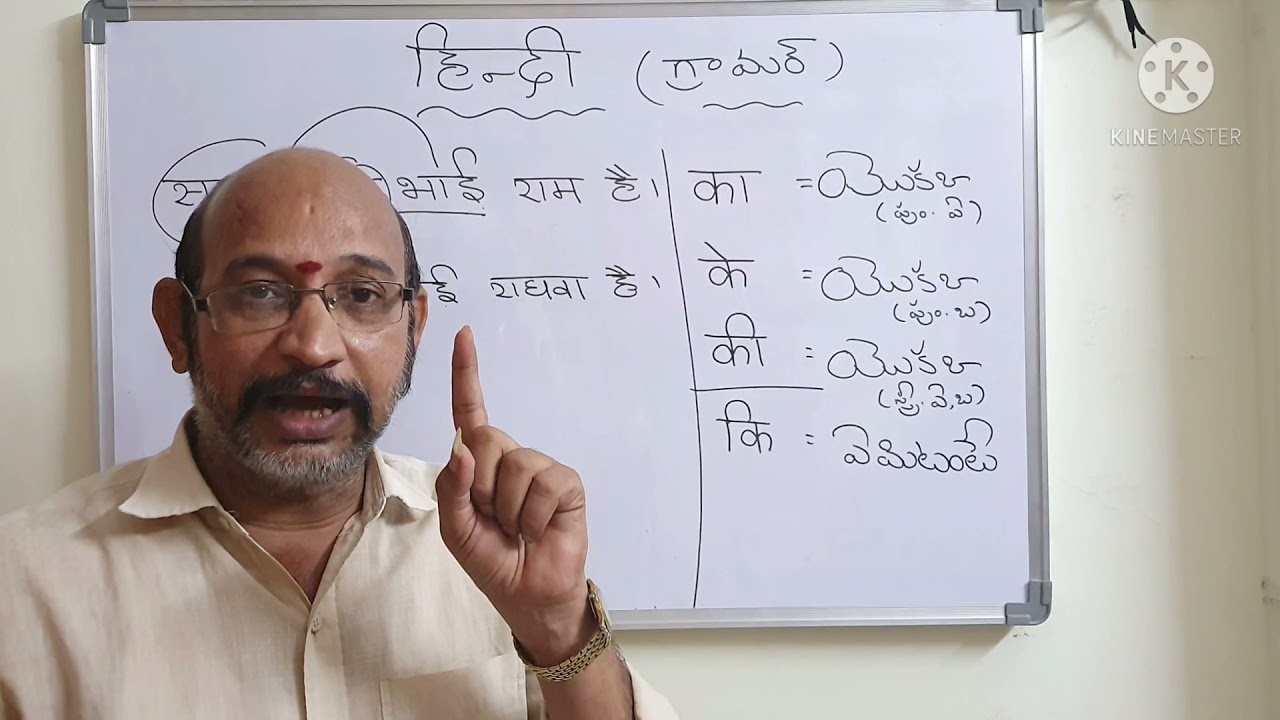 हिन्दी (గ్రామర్)
भाई राम है।
राघवा है।
का = యొక్క
(పుం. ఏ)
के = యొక్క
(పుం. బ)
की = యొక్క
(స్త్రీ. ఏ, బ)
कि = ఏమిటంటే
K
KINEMASTER